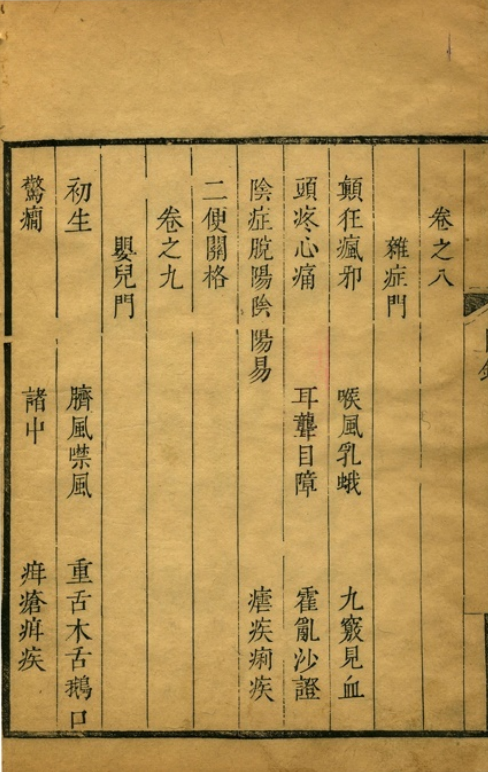 卷之八
雜症門
顛狂瘋邪 喉風乳蛾 九竅見血
頭疼心痛 耳聾目障 霍亂沙證
陰症脫陽陰陽易 瘧疾痢疾
二便關格
卷之九
嬰兒門
初生 臍風噤風 重舌木舌鵝口
驚癇 諸中 疳瘡痳疾